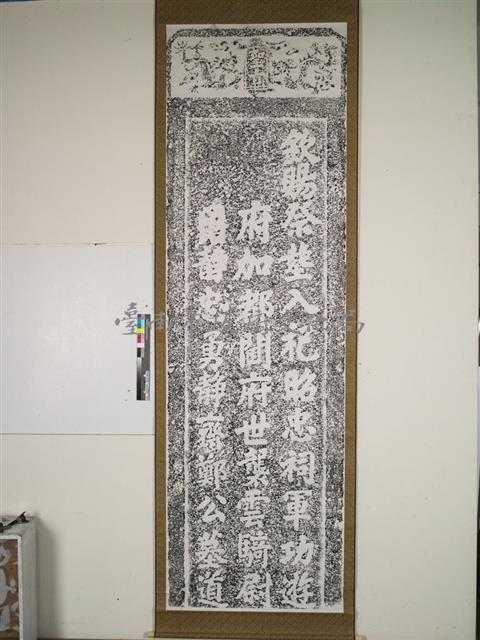 欽賜祭塋入祀昭忠祠軍功遊
府加都閫府世襲雲騎尉
忠勇靜齋鄭公墓道
臺南